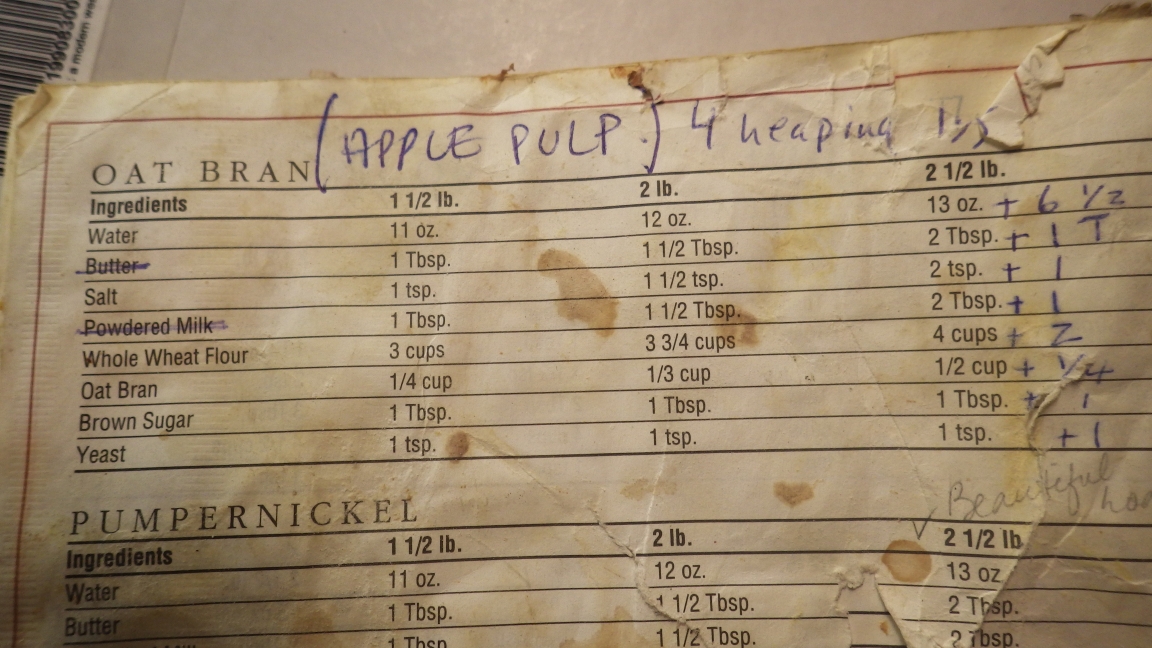 (APPLE PULP.) 4 heaping
OAT BRAN
Ingredients 1 1/2 lb. 2 lb. 2 1/2 lb.
Water 11 oz. 12 oz. 13 oz. + 6 1/2
Butter 1 Tbsp. 1 1/2 Tbsp. 2 Tbsp. + 1 T
Salt 1 tsp. 1 1/2 tsp. 2 tsp. + 1
Powdered Milk 1 Tbsp. 1 1/2 Tbsp. 2 Tbsp. + 1
Whole Wheat Flour 3 cups 3 3/4 cups 4 cups + 2
Oat Bran 1/4 cup 1/3 cup 1/2 cup + 1/4
Brown Sugar 1 Tbsp. 1 Tbsp. 1 Tbsp. + 1
Yeast 1 tsp. 1 tsp. 1 tsp. + 1
Beautiful
PUMPERNICKEL
Ingredients 1 1/2 lb. 2 lb. ✓ 2 1/2 lb
Water 11 oz. 12 oz. 13 oz
Butter 1 Tbsp. 1 1/2 Tbsp. 2 Tbsp.
1 Tbsp 1 1/2 Tbsp. 2 Tbsp.